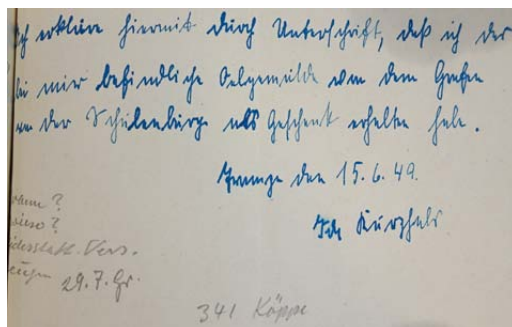 Ich erkläre hiermit durch Unterschrift, daß ich das
bei mir befindliche Oelgemälde von dem Grafen
von der Schulenburg als Geschenk erhalten habe.
den 15.6.49.
Ida Kurzhals
wann?
wieso?
eidesstatt. Vers.
29.7. Gr.
341 Köppe